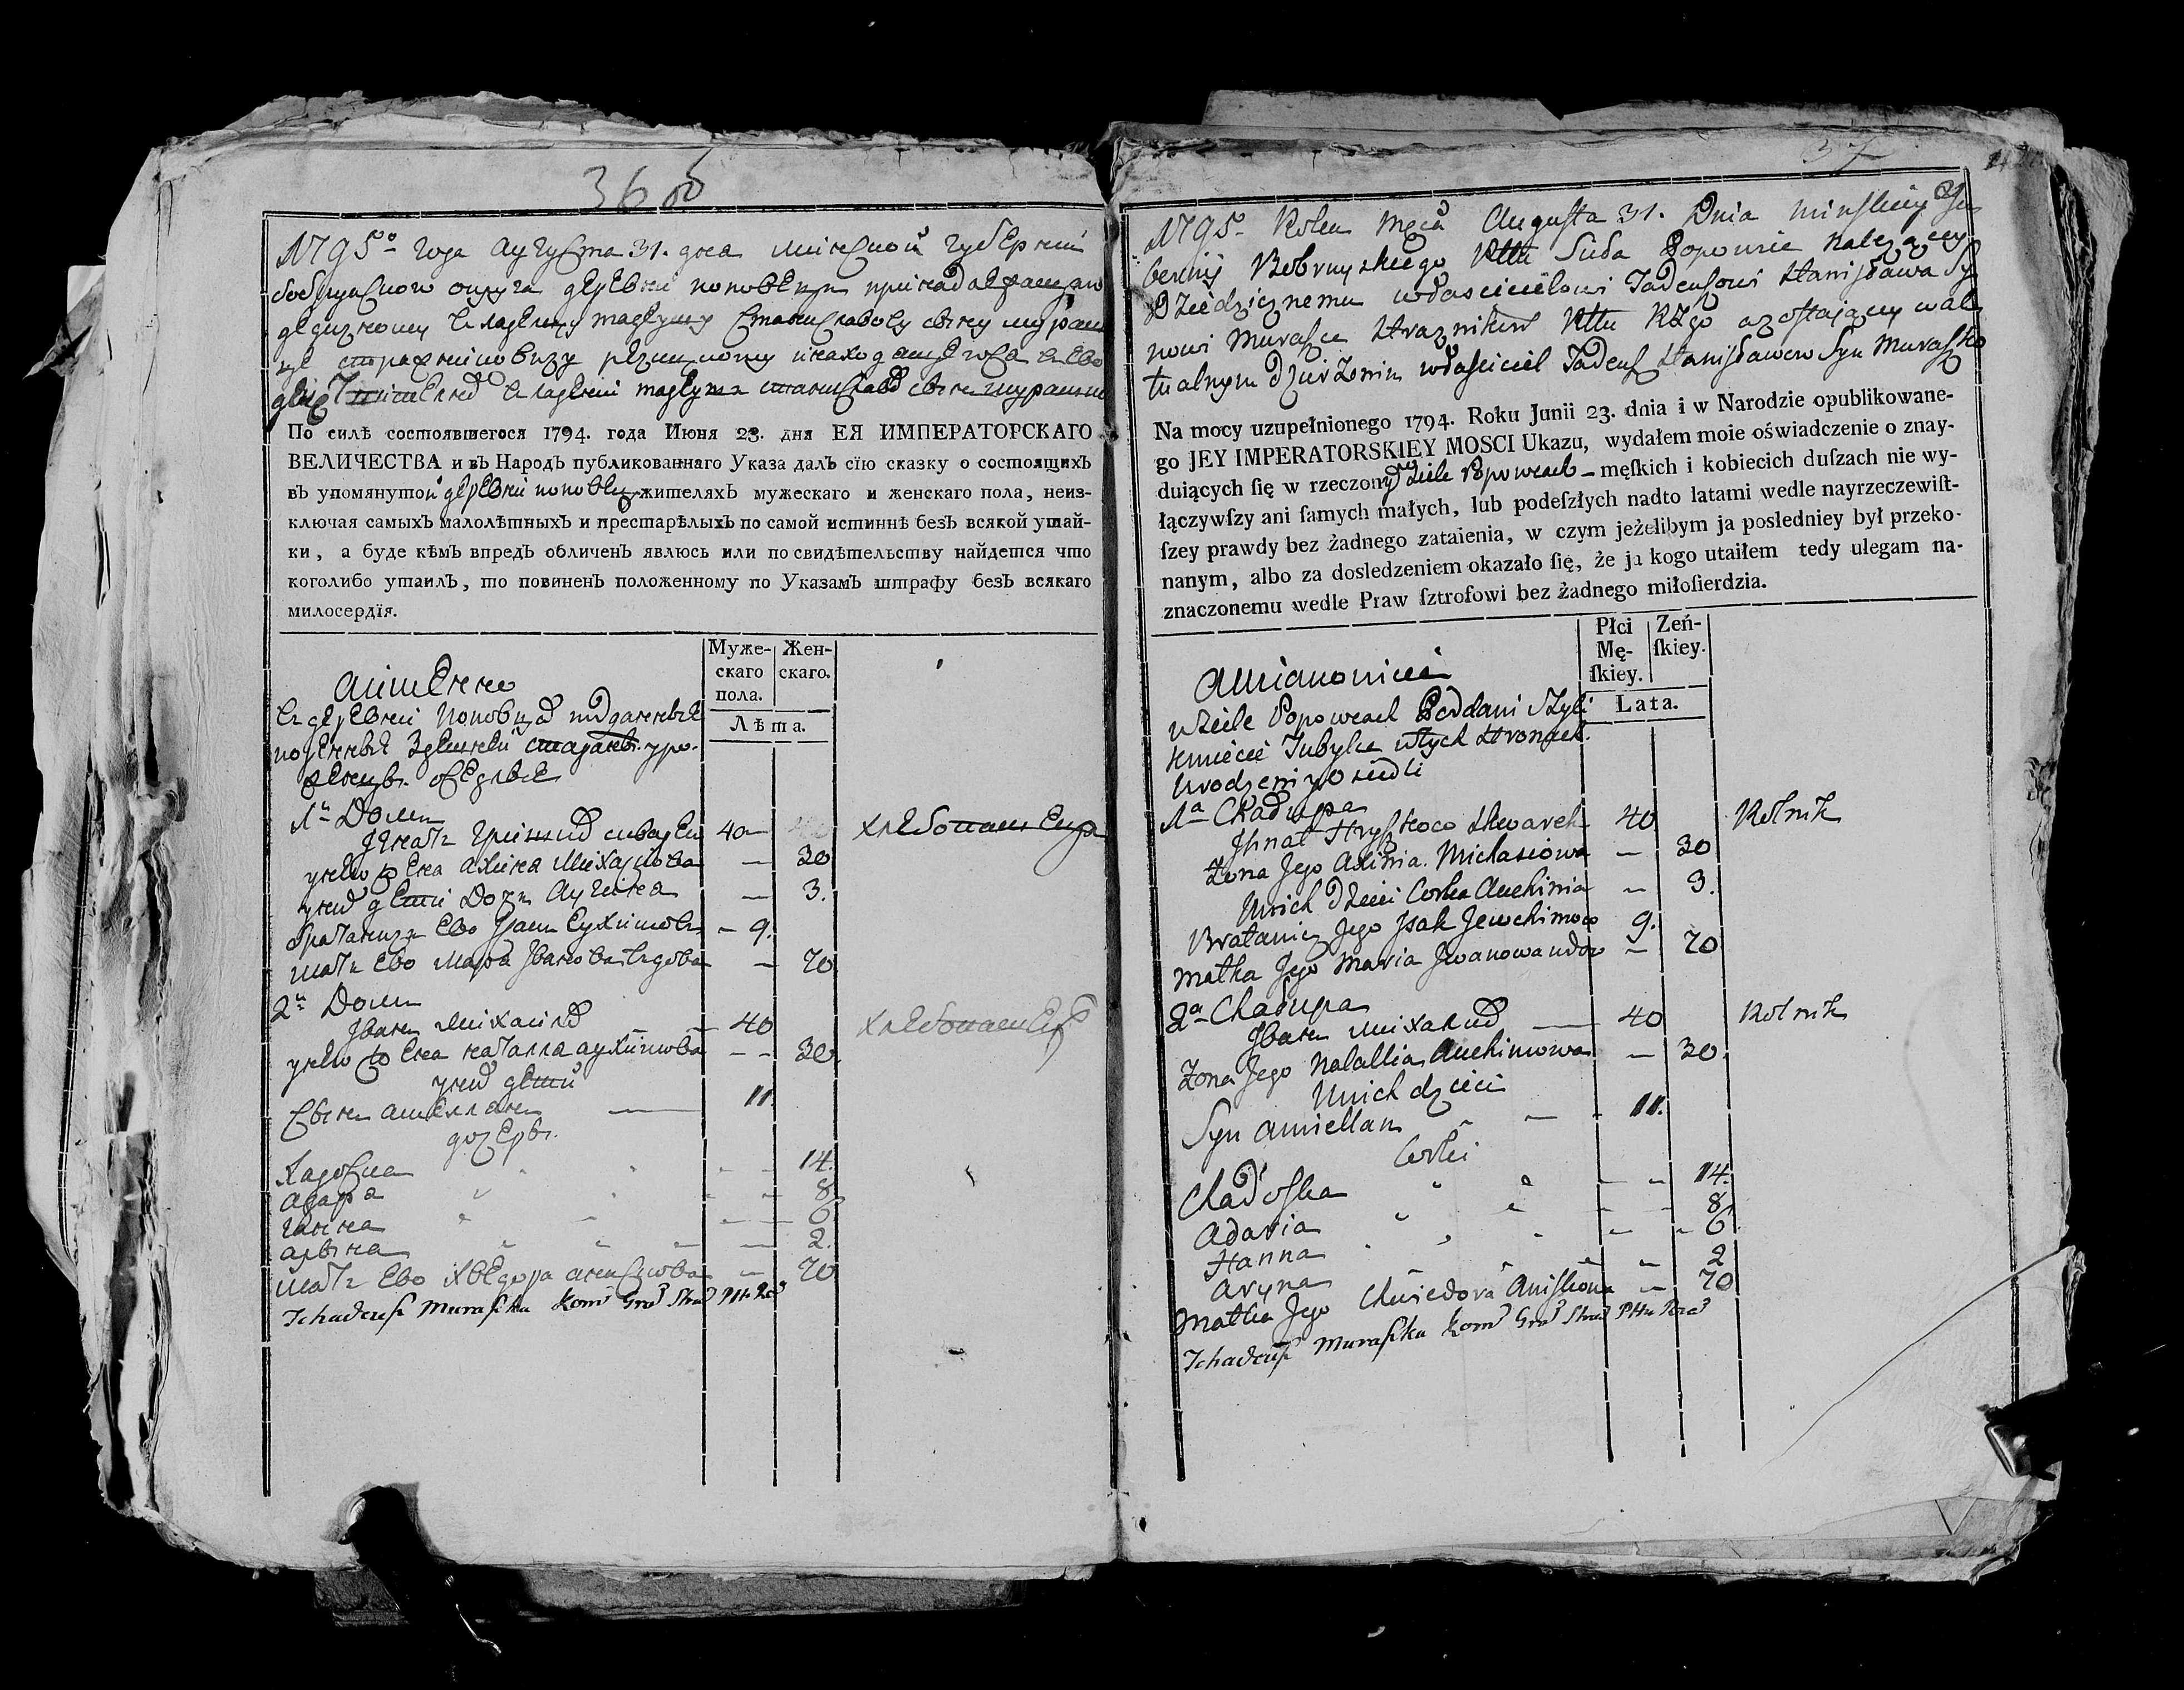 36 об
1795º года августа 31. дня минской губернии
бобруйского округа деревни поповци принадлежащаго
дедизному владелцу тадеушу станиславову сыну мураш
владелец тадеуш станиславов сын мурашко
По силѣ состоявшегося 1794. года Июня 23. дня ЕЯ ИМПЕРАТОРСКАГО
ВЕЛИЧЕСТВА и въ Народъ публикованнаго Указа далъ сїю сказку о состоящихъ
въ упомянутой деревни поповцу жителяхъ мужескаго и женскаго пола, неиз-
ключая самыхъ малолѣтныхъ и престарѣлыхъ по самой истиннѣ безъ всякой утай-
ки, а буде кѣмъ впредь обличенъ явлюсь или по свидѣтельству найдется что
коголибо утаилъ, то повиненъ положенному по Указамъ штрафу безъ всякаго
милосердїя.
Муже-
скаго
пола.
Жен-
скаго.
Лѣта.
имено
в деревни поповцах подданые
1й Дом
Игнат гришков сковарен 40 хлебопашец
у него жена акиня михасиова — 30
у них дети дочь аухиня — 3.
братанич ево Исак еухимов — 9.
мать ево мария Иванова вдова — 70
2й Дом
Иван михалков — 40 хлебопашец
у него жена наталля аухимова — 30.
у них дети
Сын амеллян — 11.
дочери
хадоска 14.
адаря 8
ганна 6
арына 2.
мать ево хведора анискова — 70
Thadeusz Muraszka Kom Gra Stra Pttu Rze
37
1795. Roku Mca Augusta 31. Dnia Minskiey Gu
bernij Bobruyskiego Pttu Siola Popowic nalezącey
Dziedzicznemu wlascicielowi Tadeuszowi Stanisława Sy
nowi Muraszce Straznikowi Pttu RZgo azostaiącey w ak
tualnym dzierzeniu własciciel Tadeusz Stanisławow Syn Muraszko
Na mocy uzupełnionego 1794. Roku Junii 23. dnia i w Narodzie opublikowane-
go JEY IMPERATORSKIEY MOSCI Ukazu, wydałem moie oświadczenie o znay-
duiących ſię w rzeczony Siele Popowcach — męſkich i kobiecich duſzach nie wy-
łączywſzy ani ſamych małych, lub podeſzłych nadto latami wedle nayrzeczewiſt-
ſzey prawdy bez żadnego zataienia, w czym jeżelibym ja posledniey był przeko-
nanym, albo za dosledzeniem okazało ſię, że ja kogo utaiłem tedy ulegam na-
znaczonemu wedle Praw ſztrofowi bez żadnego miłoſierdzia.
Płci
Mę-
ſkiey.
Zeń-
ſkiey.
Lata.
Amianowicie
w Siele Popowcach Poddani Szyli
kmiecie Tubylce w tych Stronach
Urodzeni y osiedli
1a Chałupa
Jhnat Hryszkow Skwarek 40 Rolnik
Zona Jego Akinia Michasiowa — 30
U nich dzieci Corka Auchinia — 3.
Bratanicz Jego Jsak Jewchimow 9.
Matka Jego Maria Jwanowa wdow — 70
2a Chałupa
Jван михалков — 40 Rolnik
Zona Jego Natallia Auchimowa — 30.
U nich dzieci
Syn Amiellan — 11.
Corki
Chadoska 14.
Adaria 8
Hanna 6.
Aryna 2
Matka Jego Chwiedora Aniskowa — 70
Thadeusz Muraszka Kom Gra Stra Pttu Rze